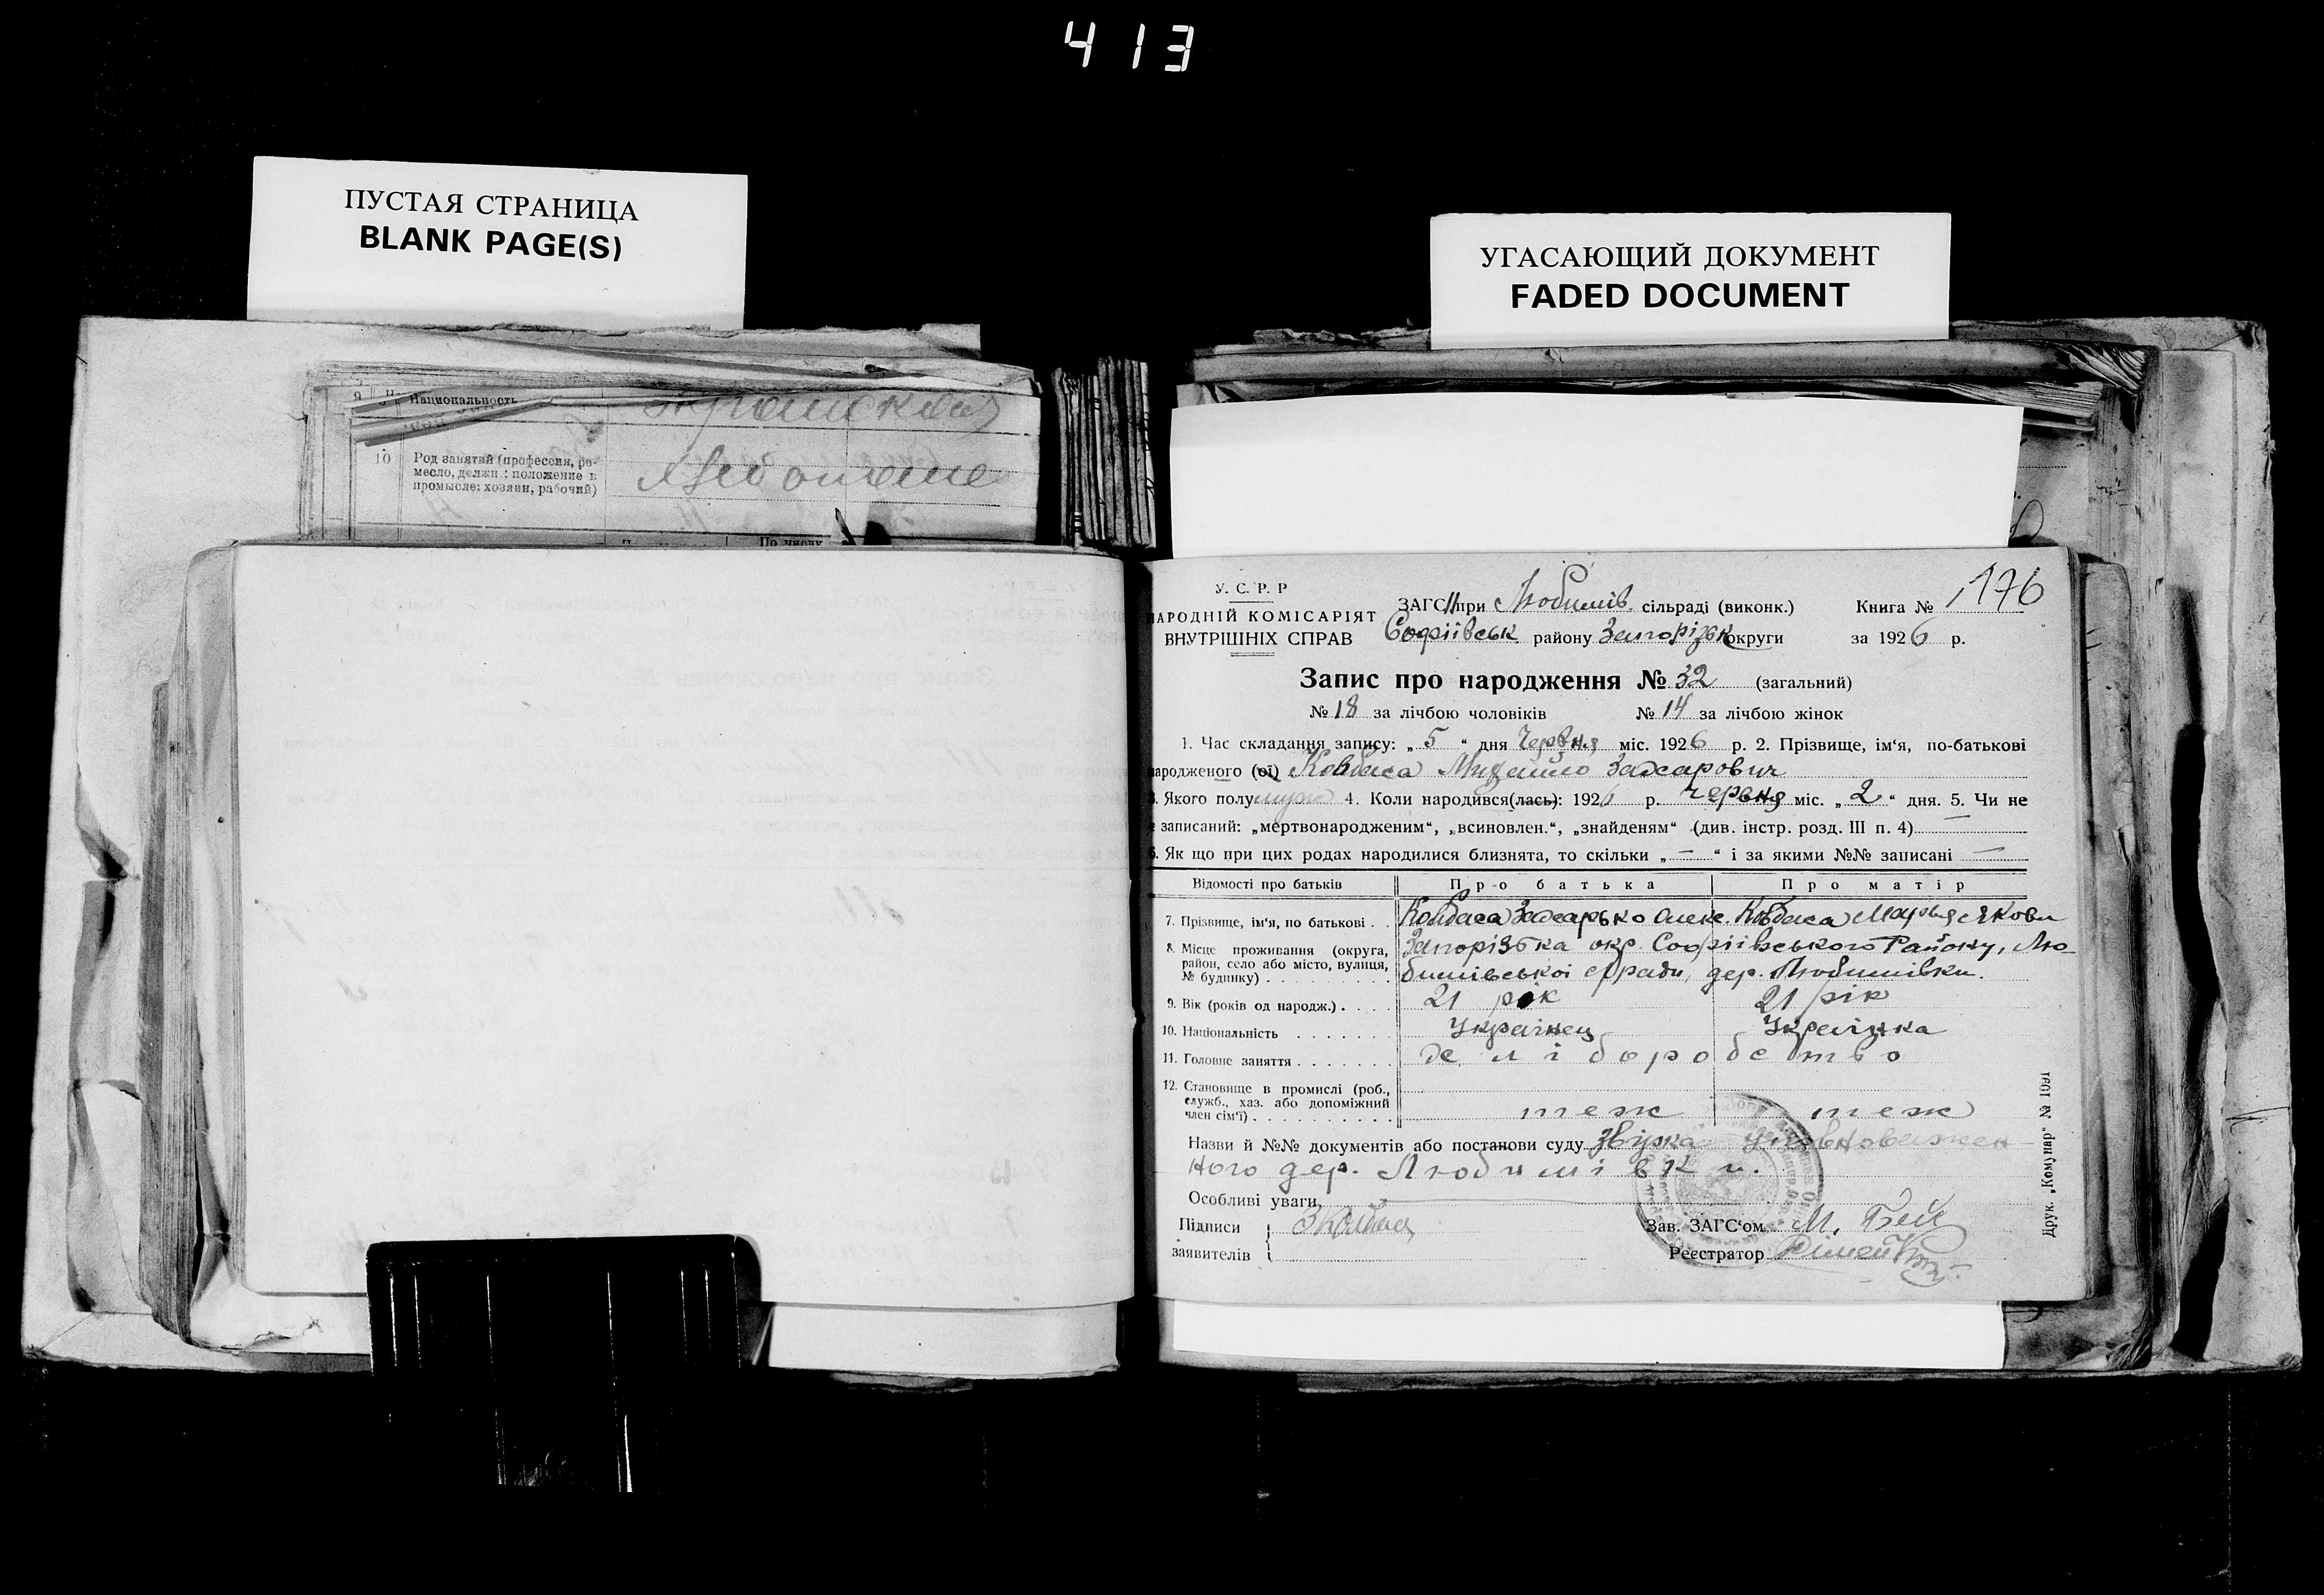 413
ПУСТАЯ СТРАНИЦА
BLANK PAGE(S)
УГАСАЮЩИЙ ДОКУМЕНТ
FADED DOCUMENT
9 Национальность
10 Род занятий (профессия, ре-
месло, должн.: положение в
промысле: хозяин, рабочий)
По числу
176
У. С. Р. Р
НАРОДНІЙ КОМІСАРІЯТ
ВНУТРІШНІХ СПРАВ
ЗАГС при Любимів. сільраді (виконк.) Книга №
Софіївськ району Запорізьк округи за 1926 р.
Запис про народження № 32 (загальний)
№ 18 за лічбою чоловіків № 14 за лічбою жінок
1. Час складання запису: „ 5 “ дня Червня міс. 1926 р. 2. Прізвище, ім‘я, по-батькові
народженого (ої) Ковбаса Михайло Захарович
3. Якого полу муж 4. Коли народився(лась): 1926 р. Червня міс. „ 2 “ дня. 5. Чи не
є записаний: „мертвонародженим“, „всиновлен.“, „знайденям“ (див. інстр. розд. III п. 4) —
6. Як що при цих родах народилися близнята, то скільки „ — “ і за якими №№ записані —
Відомості про батьків Про батька Про матір
7. Прізвище, ім‘я, по батькові . . Ковбаса Захарько Олекс. Ковбаса Марья Якови
8. Місце проживання (округа, Запорізька окр. Софіівського Району, Лю-
район, село або місто, вулиця,
№ будинку) . . . . . . . . . бимівськоі с/ради, дер. Любимівки.
9. Вік (років од народж.) . . . . 21 рік 21 рік
10. Національність . . . . . . . Украінец Украінка
11. Головне заняття . . . . . . . хліборобство
12. Становище в промислі (роб.,
служб., хаз. або допоміжний
член сім‘ї) . . . . . . . . . . теж теж
Назви й №№ документів або постанови суду Звірка уповноважен-
ного дер. Любимівки.
Особливі уваги
Підписи
заявителів
Зав. ЗАГС‘ом М. Бей
Реєстратор
Друк. „Комунар“ № 1091